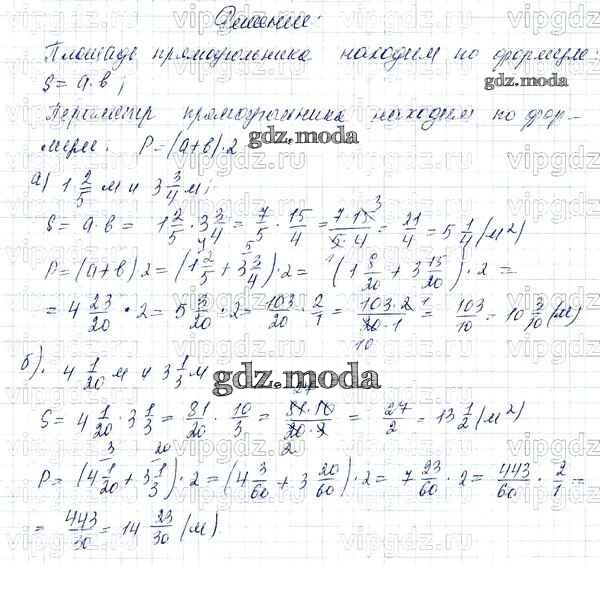 Решение:
Площадь прямоугольника находим по формуле:
S = a·b;
Периметр прямоугольника находим по фор-
муле. P = (a+b)·2
а) 1 2/5 м и 3 3/4 м;
S = a·b = 1 2/5 · 3 3/4 = 7/5 · 15/4 = 7·15/5·4 = 21/4 = 5 1/4 (м²)
P = (a+b)2 = (1 2/5 + 3 3/4)·2 = (1 8/20 + 3 15/20)·2 =
= 4 23/20 · 2 = 5 3/20 · 2 = 103/20 · 2/1 = 103·2/20·1 = 103/10 = 10 3/10 (м)
б). 4 1/20 м и 3 1/3 м
S = 4 1/20 · 3 1/3 = 81/20 · 10/3 = 81·10/20·3 = 27/2 = 13 1/2 (м²)
P = (4 1/20 + 3 1/3)·2 = (4 3/60 + 3 20/60)·2 = 7 23/60 · 2 = 443/60 · 2/1 =
= 443/30 = 14 23/30 (м)
gdz.moda
gdz.moda
gdz.moda
vipgdz.com